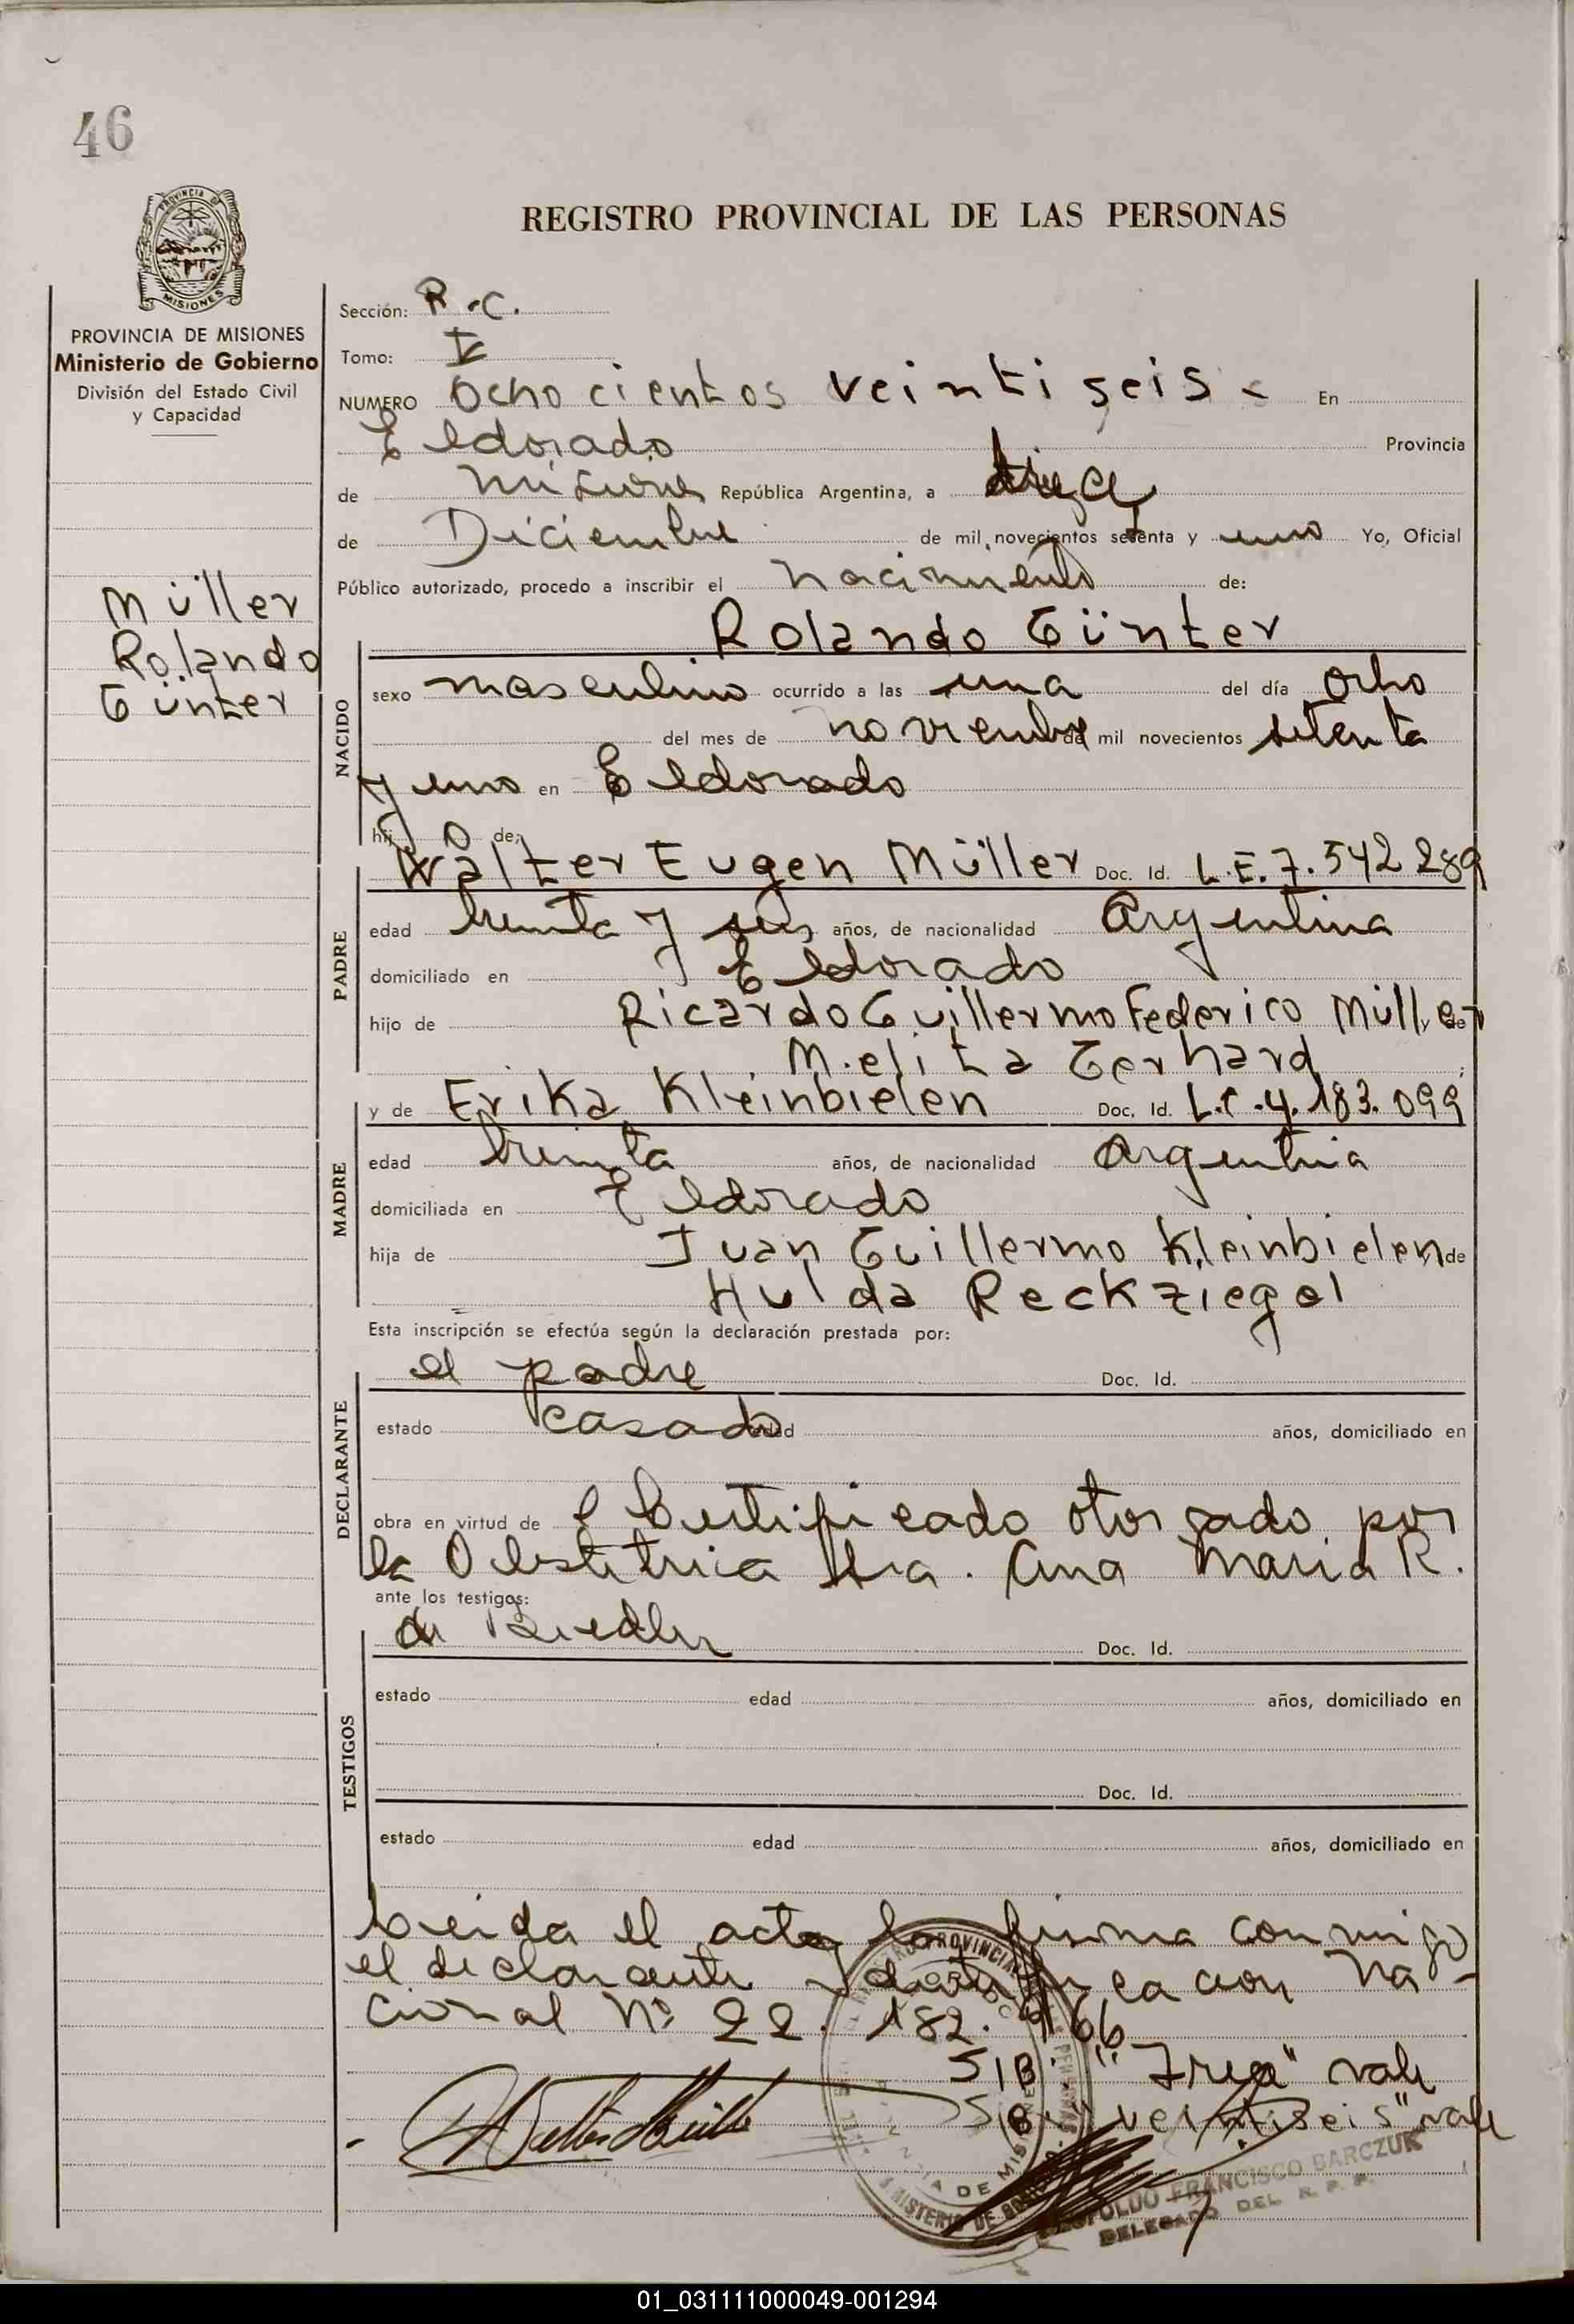 46
PROVINCIA DE
MISIONES
PROVINCIA DE MISIONES
Ministerio de Gobierno
División del Estado Civil
y Capacidad
Müller
Rolando
Günter
REGISTRO PROVINCIAL DE LAS PERSONAS
Sección: R.C.
Tomo: V
NUMERO Ochocientos veintiseis.- En
Eldorado Provincia
de Misiones República Argentina, a trece
de Diciembre de mil novecientos setenta y uno Yo, Oficial
Público autorizado, procedo a inscribir el nacimiento de:
NACIDO
Rolando Günter
sexo masculino ocurrido a las una del día ocho
del mes de noviembre de mil novecientos setenta
y uno en Eldorado
hijo de:
PADRE
Walter Eugen Müller Doc. Id. L.E. 7.542.289
edad treinta y seis años, de nacionalidad Argentina
domiciliado en Eldorado
hijo de Ricardo Guillermo Federico Müller y de
Melita Gerhard ;
MADRE
y de Erika Kleinbielen Doc. Id. L.C. 4.183.099
edad treinta años, de nacionalidad Argentina
domiciliada en Eldorado
hija de Juan Guillermo Kleinbielen y de
Hulda Reckziegel
Esta inscripción se efectúa según la declaración prestada por:
DECLARANTE
el padre Doc. Id.
estado casado edad años, domiciliado en
obra en virtud de el Certificado otorgado por
la Obstetrica Sra. Ana Maria R.
ante los testigos:
de Riedler Doc. Id.
TESTIGOS
estado edad años, domiciliado en
Doc. Id.
estado edad años, domiciliado en
Leida el acta, la firma conmigo
el declarante Identificacion Na-
cional Nº 22.182.966
S/B. "Trece" vale
S/B. "veintiseis" vale
Walter Müller
LEOPOLDO FRANCISCO BARCZUK
DELEGADO DEL R. P. P.
01_031111000049-001294